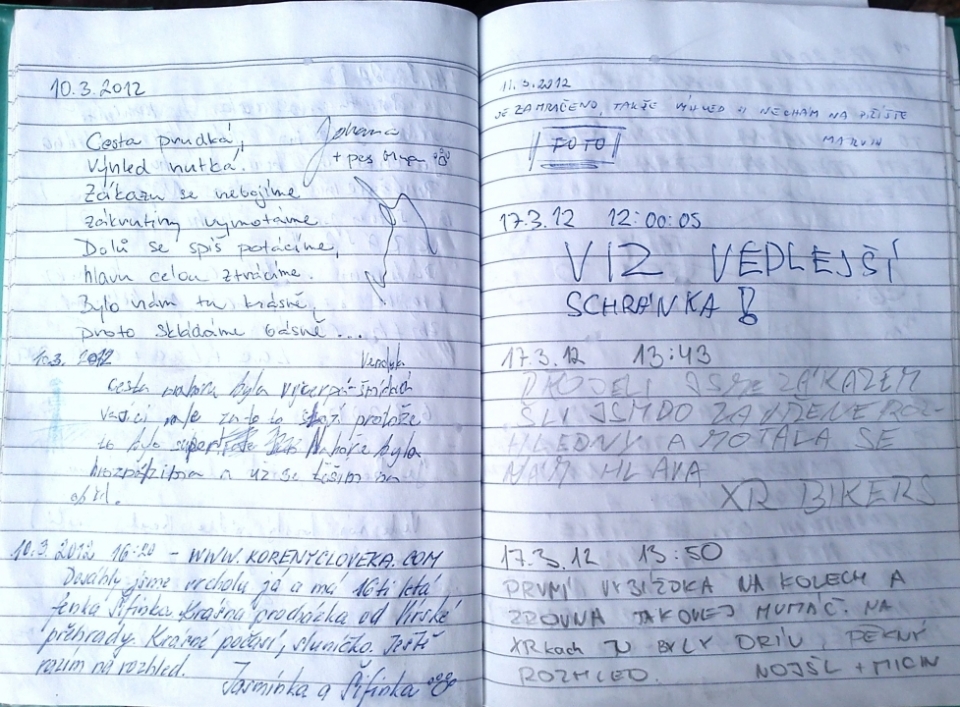 10.3.2012
Cesta prudká,
výhled nutká.
Zákazu se nebojíme
zákrutiny vymotáme.
Dolů se spíš potácíme,
hlavu celou ztrácíme.
Bylo nám tu krásně,
proto skládáme básně ....
Johana
+ pes
10.3. 2012
Vendula
cesta nahoru byla
ale za to to stojí protože
to bylo super Nahoře byla
zima a už se těším na
oběd.
10.3.2012 16:20 - WWW.KORENYCLOVEKA.COM
Dosáhly jsme vrcholu já a má 16ti letá
fenka Fifinka. Krásná procházka od Vírské
přehrady. Krásné počasí, sluníčko. Ještě
razím na rozhled.
Jasmínka a Fifinka
11.3.2012
JE ZAMRAČENO, TAKŽE VÝHLED SI NECHÁM NA PŘÍŠTĚ
FOTO
17.3.12 12:00:05
VIZ VEDLEJŠÍ
SCHRÁNKA !
17.3.12 13:43
PROJELI JSME ZÁKAZEM
ŠLI JSM DO ROZ-
HLEDNY A MOTALA SE
NÁM HLAVA
XR BIKERS
17.3.12 13:50
PRVNÍ VYJÍŽĎKA NA KOLECH A
ZROVNA TAKOVEJ NA
XRkach TU BYLY DŘÍV PĚKNÝ
ROZHLED.